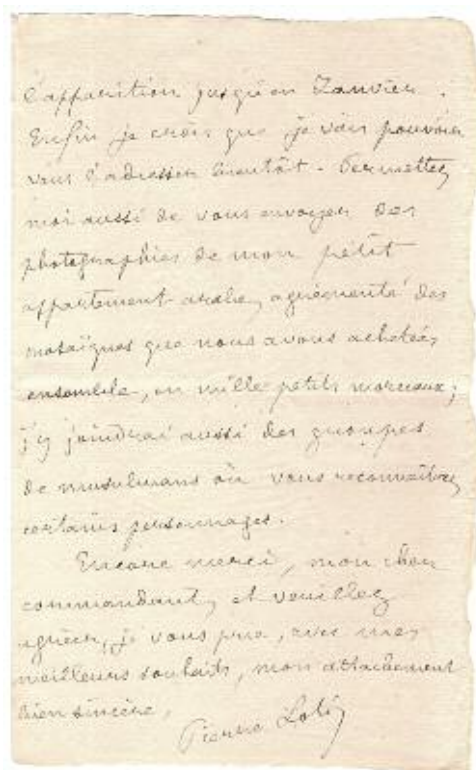 l'apparition jusqu'en Janvier.
Enfin je crois que je vais pouvoir
vous l'adresser bientôt. Permettez
moi aussi de vous envoyer des
photographies de mon petit
appartement arabe, agrémenté des
mosaïques que nous avons achetées
ensemble, en mille petits morceaux;
j'y joindrai aussi des groupes
de musulmans où vous reconnaîtrez
certains personnages.
Encore merci, mon cher
commandant, et veuillez
agréer, je vous prie, avec mes
meilleurs souhaits, mon attachement
bien sincère,
Pierre Loti